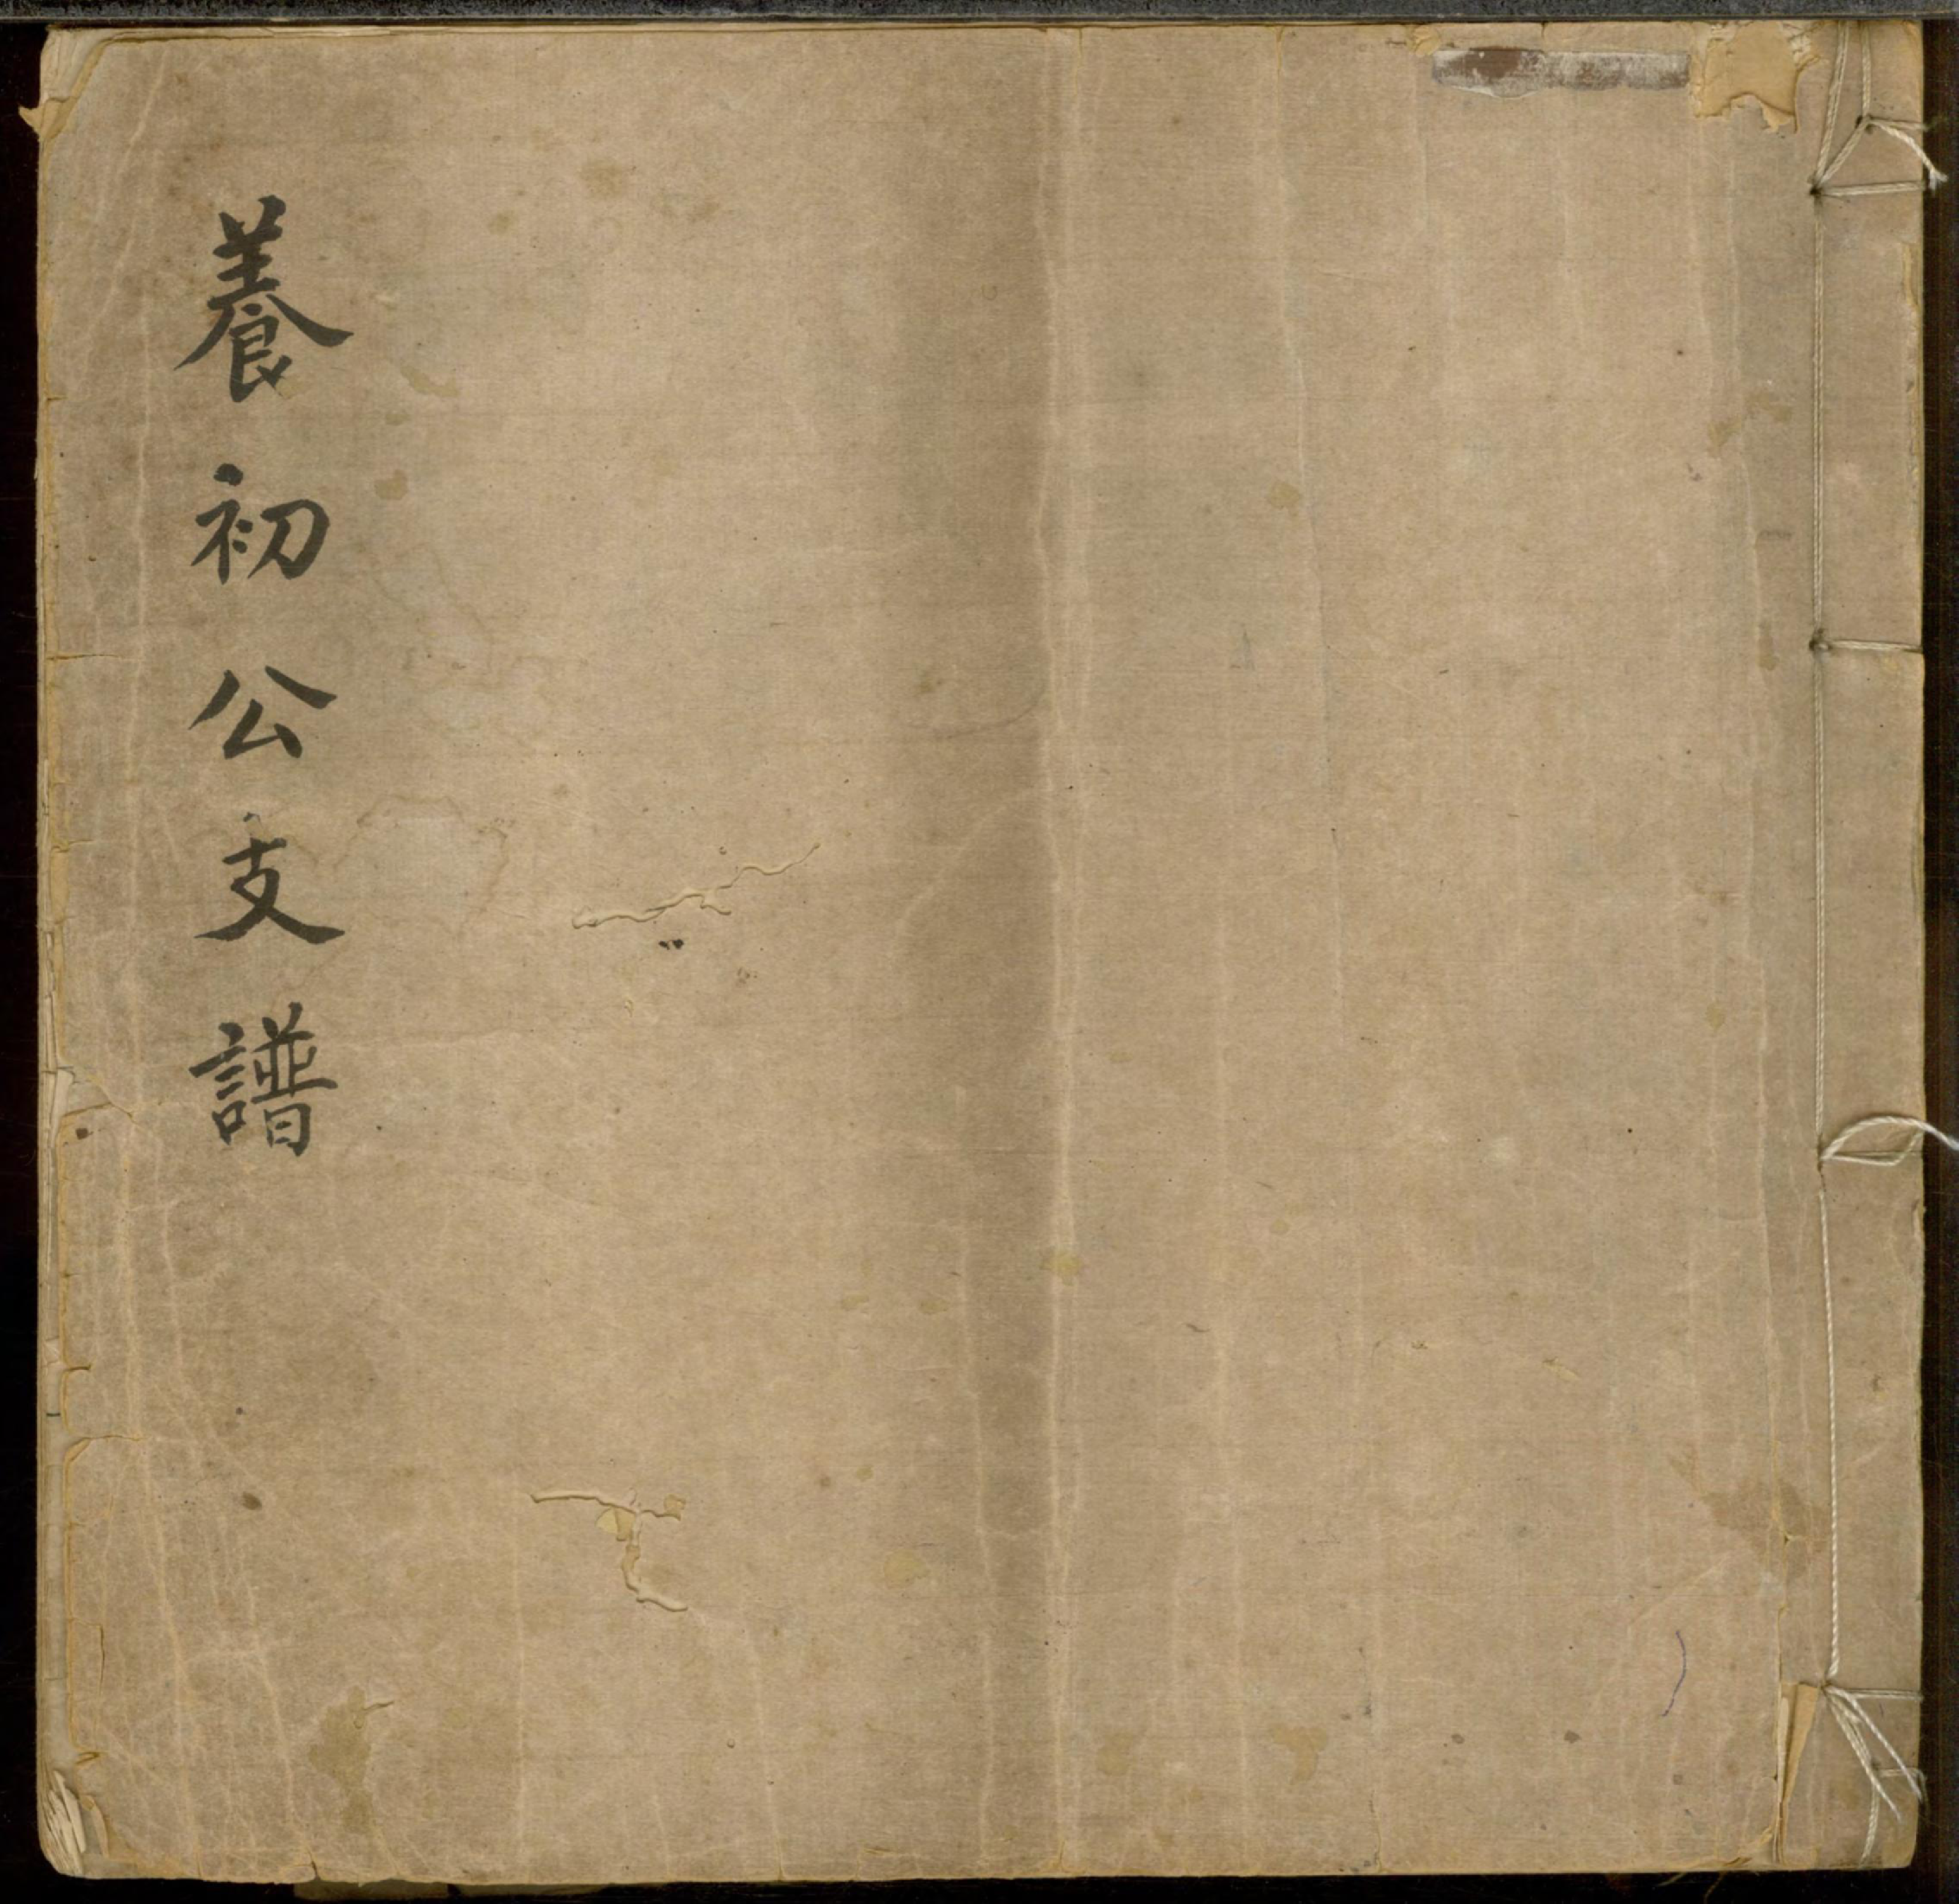 養初公支譜